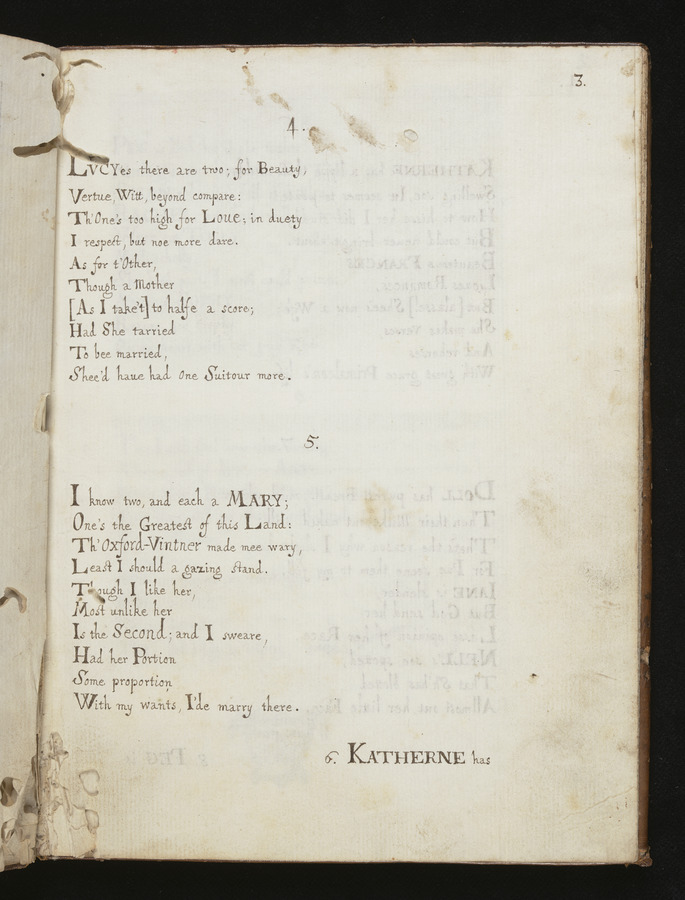 3.
4.
LVCYes there are two; for Beauty,
Vertue, Witt, beyond compare:
Th'One's too high for Loue; in duety
I respect, but noe more dare.
As for t'Other,
Though a Mother
[As I take't] to halfe a score;
Had She tarried
To bee married,
Shee'd haue had one Suitour more.
5.
I know two, and each a MARY;
One's the Greatest of this Land:
Th' Oxford-Vintner made mee wary,
Least I should a gazing stand.
Though I like her,
Most unlike her
Is the Second; and I sweare,
Had her Portion
Some proportion
With my wants, I'de marry there.
6. KATHERNE has